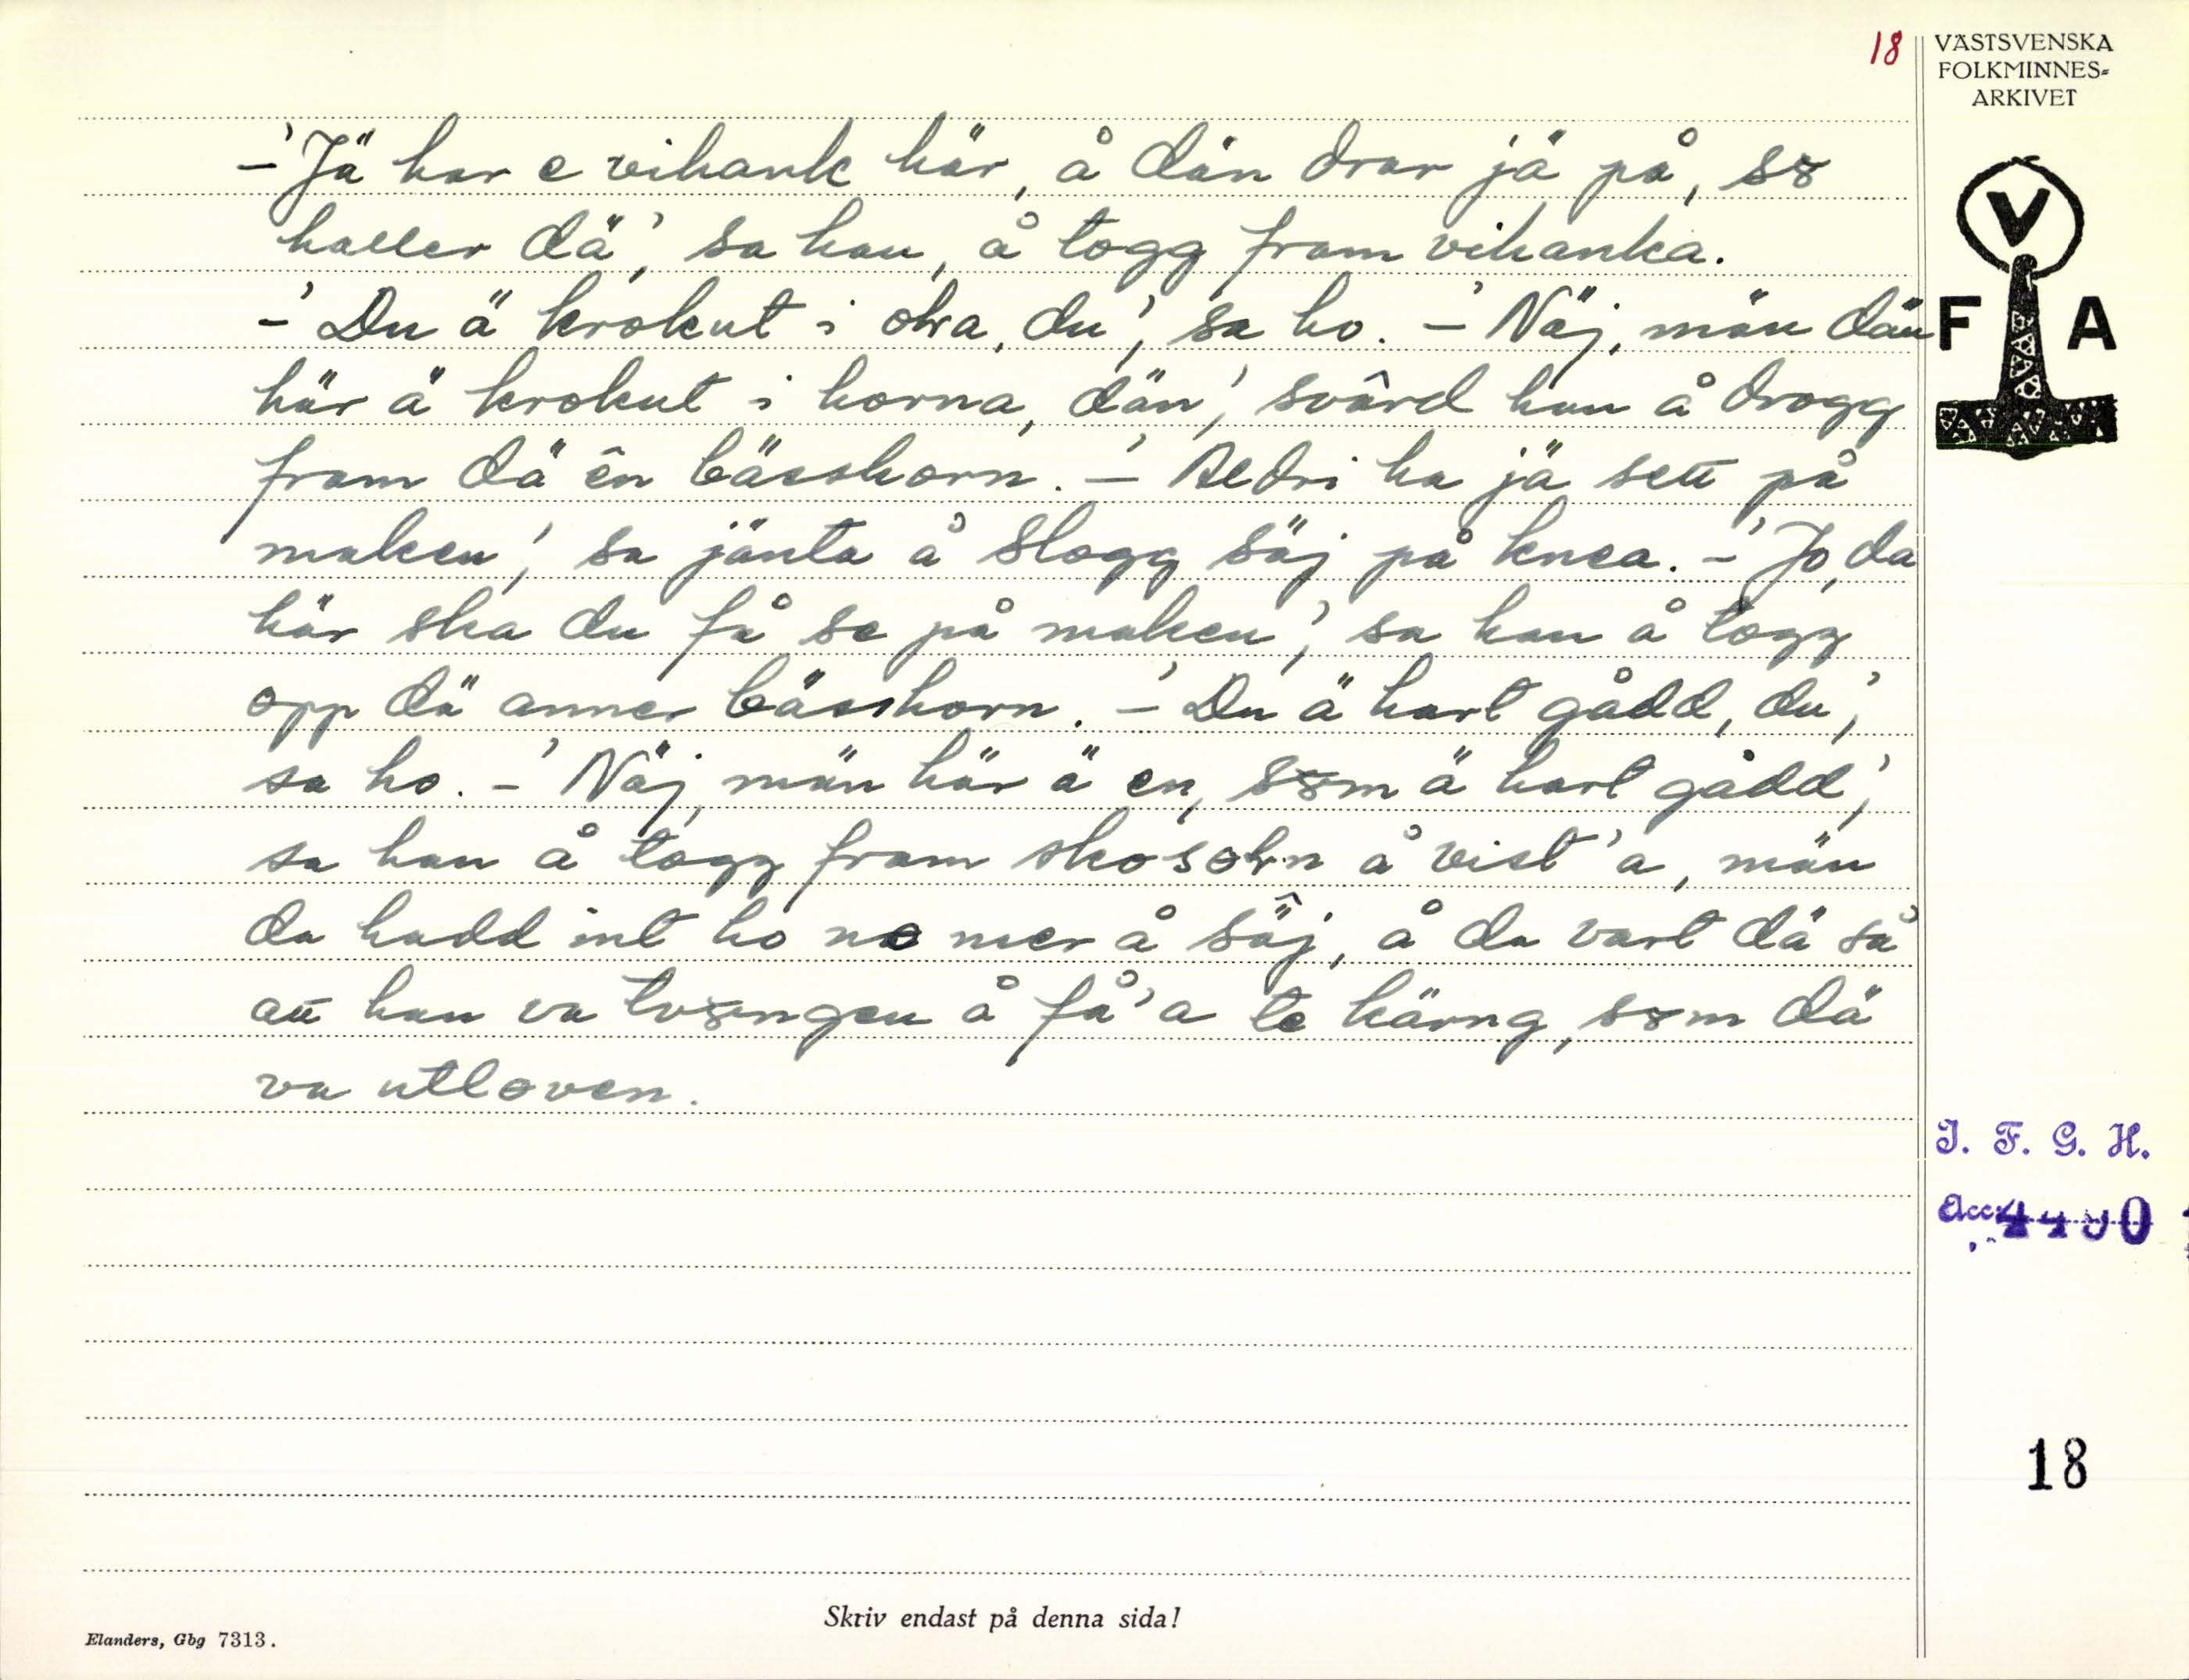 18
VÄSTSVENSKA
FOLKMINNES-
ARKIVET
V
F A
– 'Jä har e vihank här, å dän drar jä på, sɞ
haller dä', sa han, å togg fram vihanka.
– 'Du ä krokut i ola, du', sa ho. – 'Näj, män dän
här ä krokut i horna, dän', svârd han å drogg
fram dä ên bässhorn. – 'Aldri ha jä sett på
maken', sa jänta å slogg säj på knea. – 'Jo, da
här ska du få se på maken', sa han å togg
opp dä anner bässhorn. – 'Du ä hart gådd, du',
sa ho. – 'Näj, män här ä en, sɞm ä hart gådd',
sa han å togg fram skosoln å vist'a, män
da hadd int ho no mer å säj, å da vart dä så
att han va tvɞngen å få'a te kärng, sɞm dä
va utloven.
I. F. G. H.
Acc.
18
Skriv endast på denna sida!
Elanders, Gbg 7313.